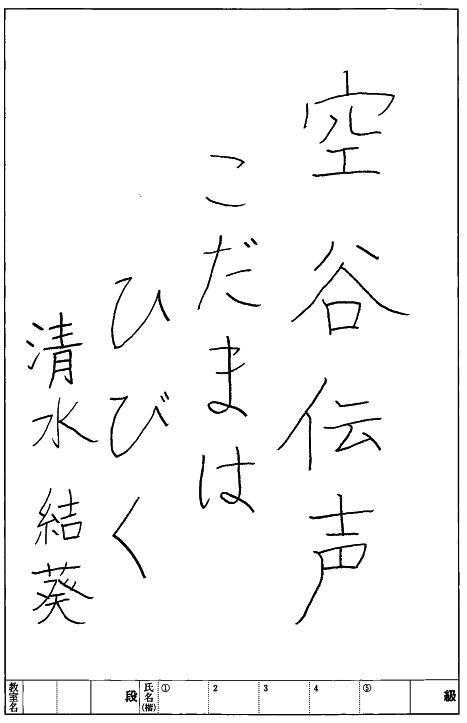 空谷伝声
こだまは
ひびく
清水 結葵
教室名 段 氏名(楷) ① 2 3 4 ⑤ 級